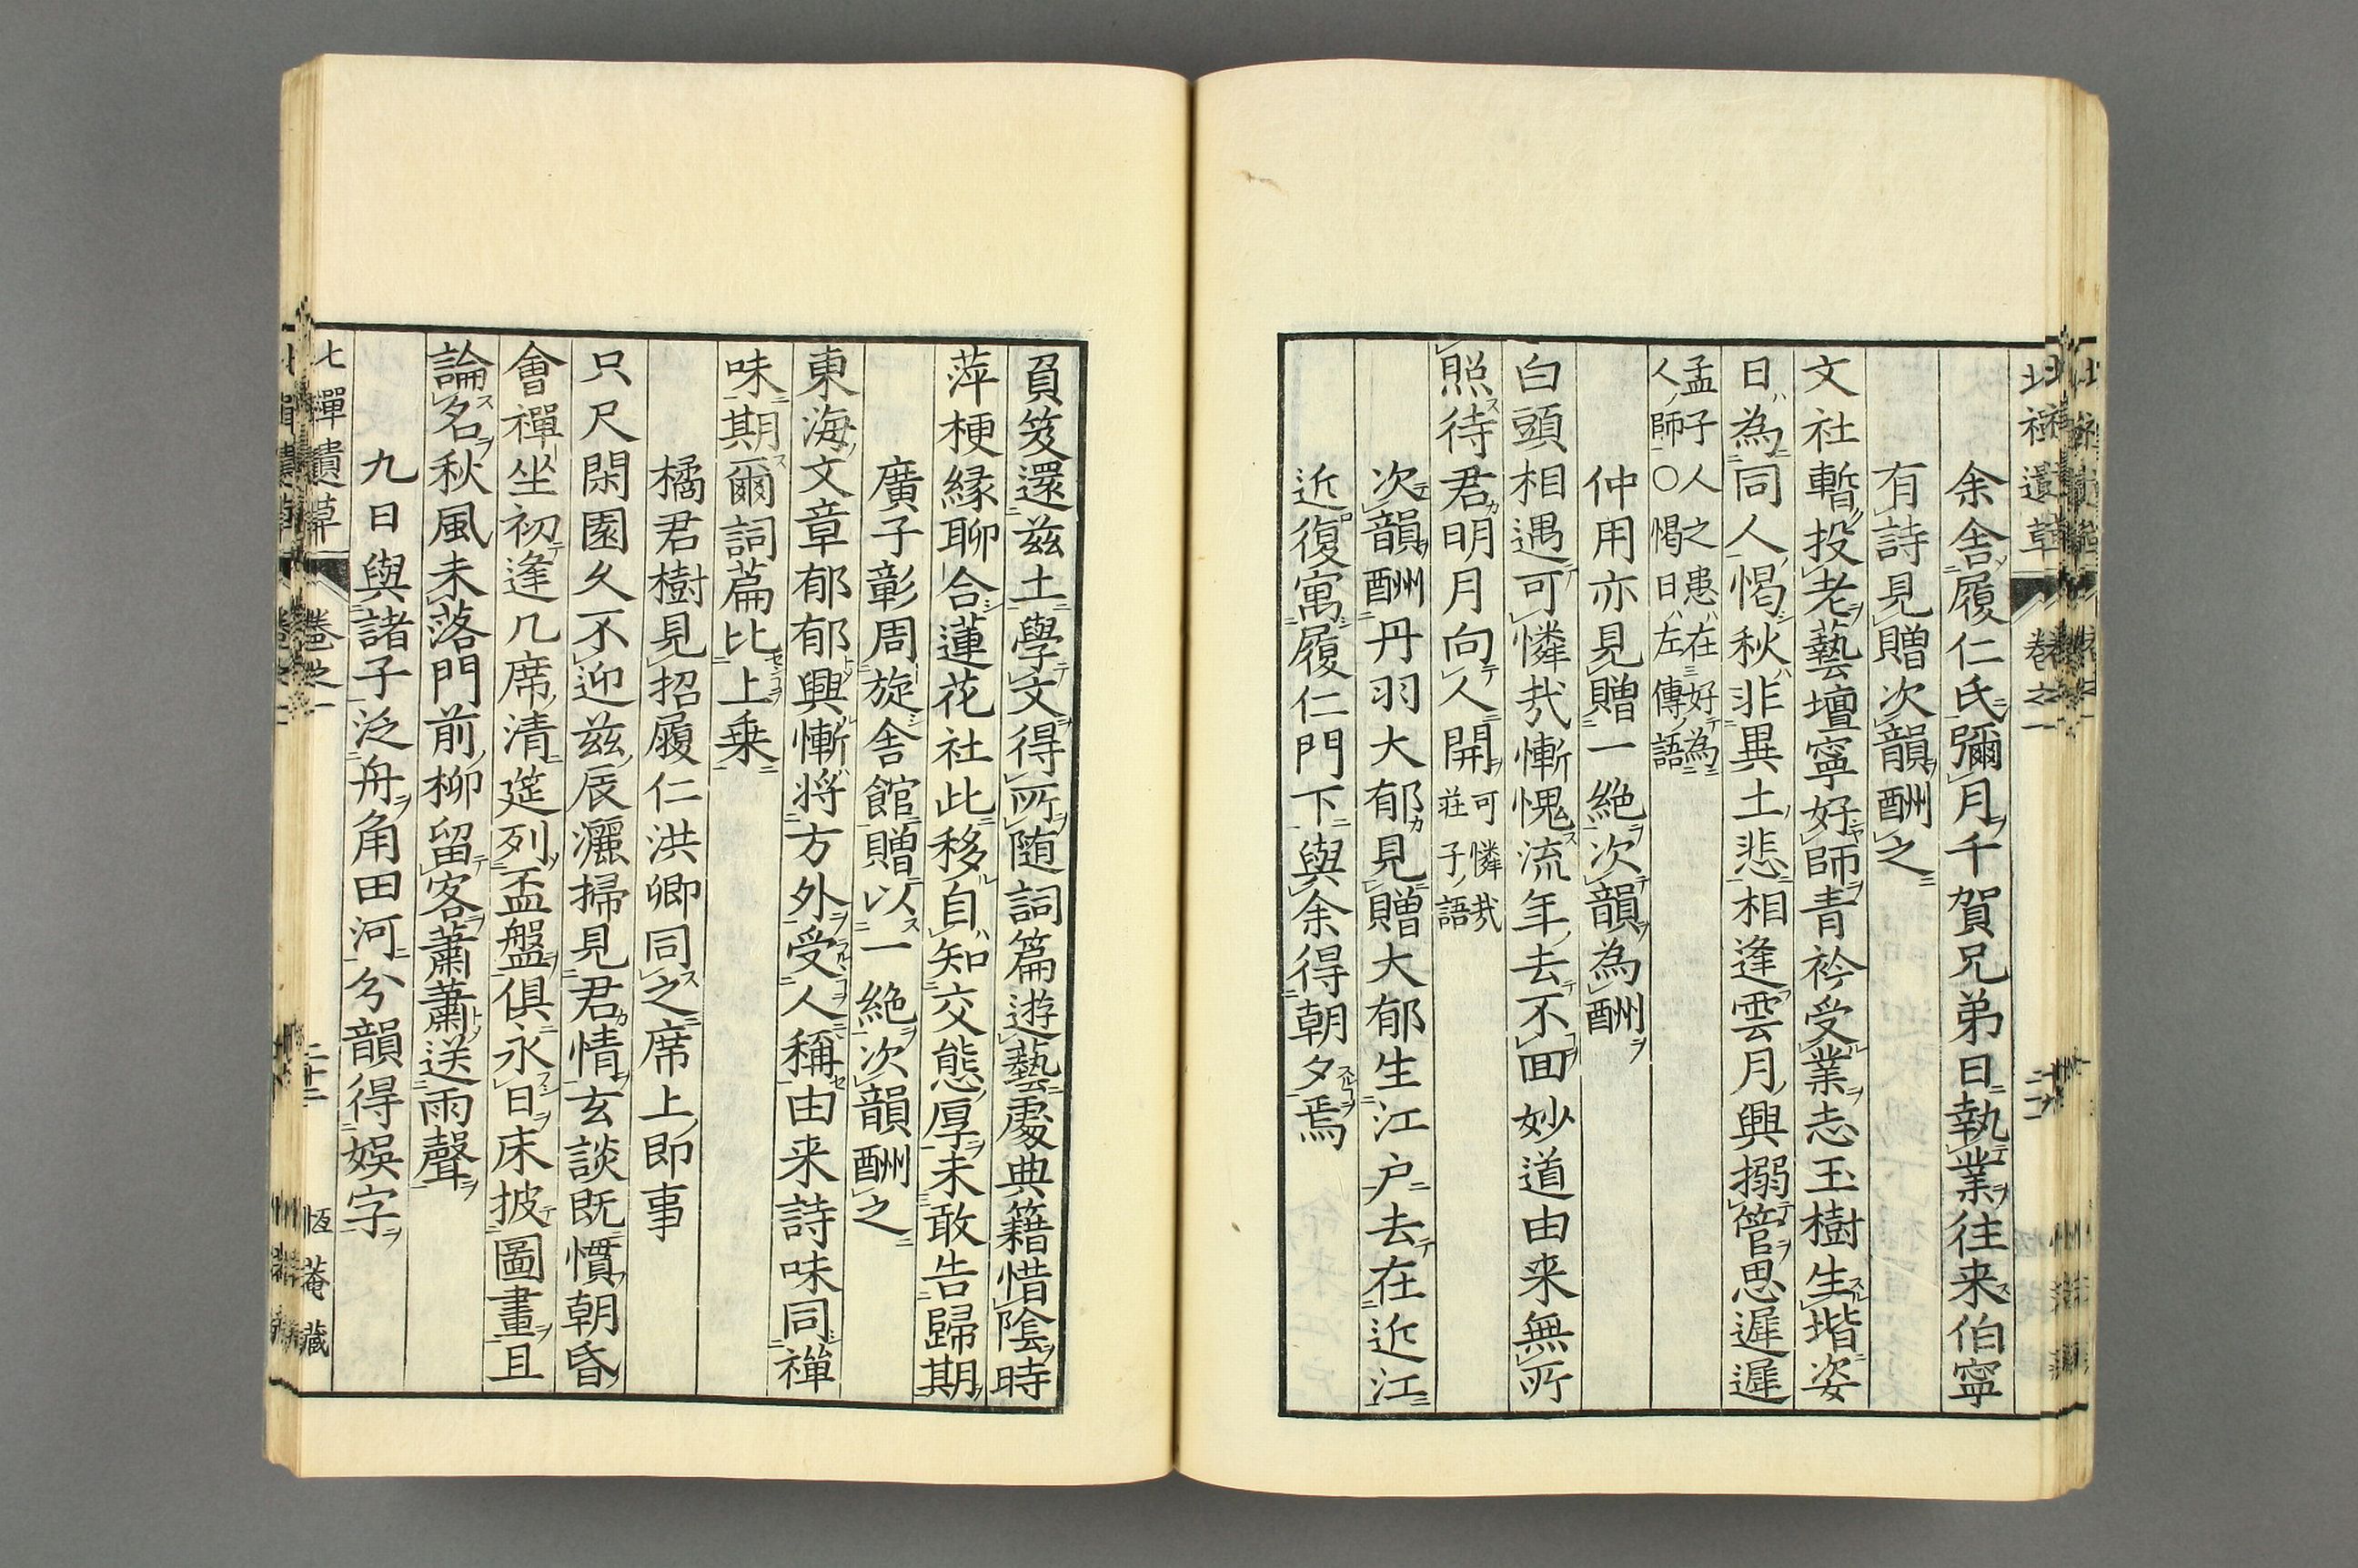 北禅遺草 卷之一
余舎履仁氏彌月千賀兄弟日執業往来伯寧
有詩見贈次韻酬之
文社暫投老藝壇寧好師青衿受業志玉樹生堦姿
日為同人愒秋非異土悲相逢雲月興搦管思遲遲
孟子人之患在好為
人師○愒日左傳語
仲用亦見贈一絶次韻為酬
白頭相遇可憐㢤慚愧流年去不回妙道由来無所
照待君明月向人開 可憐㢤
荘子語
次韻酬丹羽大郁見贈大郁生江户去在近江
近復寓履仁門下與余得朝夕焉
負笈還兹土學文得所随詞篇遊藝處典籍惜陰時
萍梗縁聊合蓮花社此移自知交態厚未敢告歸期
廣子彰周旋舎館贈以一絶次韻酬之
東海文章郁郁興慚将方外受人稱由来詩味同禅
味期爾詞篇比上乗
橘君樹見招履仁洪卿同之席上即事
只尺閑園久不迎兹辰灑掃見君情玄談既慣朝昏
會禪坐初逢几席清筵列盃盤俱永日床披圖畫且
論名秋風未落門前柳留客蕭蕭送雨聲
九日與諸子泛舟角田河分韻得娯字
七禪遺草 卷之一 二十二 恆菴藏